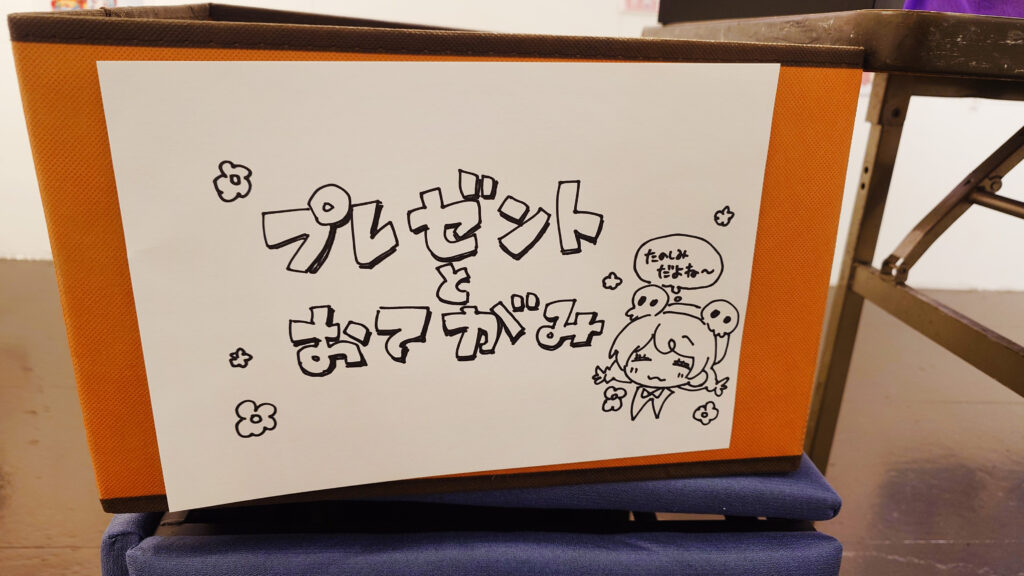 プレゼント
と
おてがみ
たのしみ
だよね〜